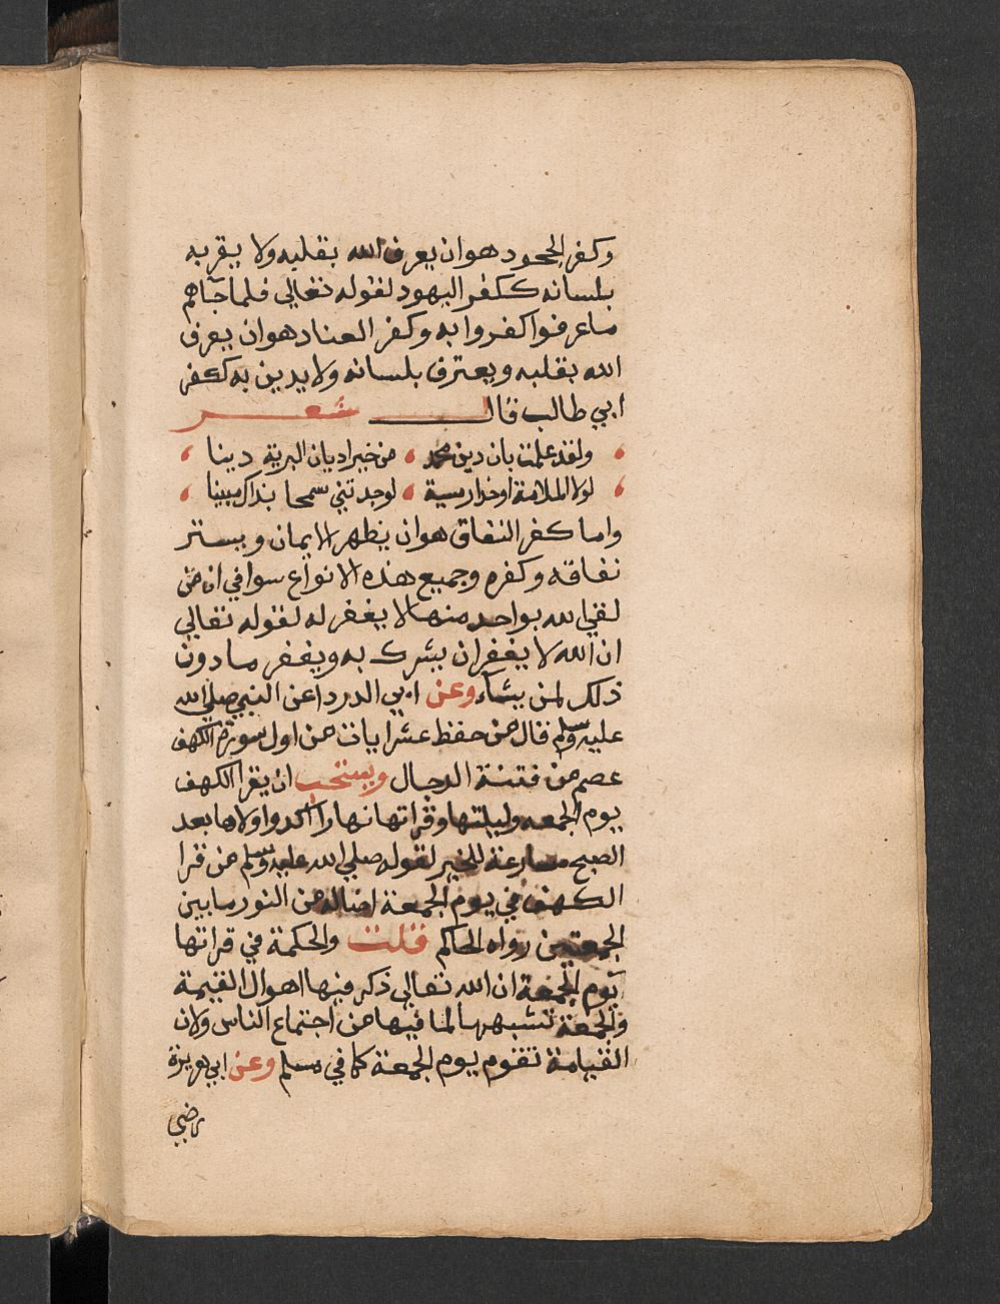 وكفر الجحود هو ان يعرف الله بقلبه ولا يقر به
بلسانه ككفر اليهود لقوله تعالي فلما جآهم
ماعرفوا كفروا به وكفر العناد هو ان يعرف
الله بقلبه ويعترف بلسانه ولا يدين به ككفر
ابي طالب قال شعر
ولقد علمت بان دين محمد ، من خير اديان البرية دينا ،
لولا الملامة او حذار مسبة ، لوجدتني سمحا بذاك مبينا ،
واما كفر النفاق هو ان يظهر الايمان ويستر
نفاقه وكفره وجميع هذه الانواع سوا في ان من
لقي الله بواحد منها لا يغفر له لقوله تعالي
ان الله لا يغفر ان يشرك به ويغفر مادون
ذلك لمن يشآء وعن ابي الدردا عن النبي صلي الله
عليه وسلم قال من حفظ عشر ايات من اول سورة الكهف
عصم من فتنة الدجال ويستحب ان يقرا الكهف
يوم الجمعه وليلتها وقراتها نهارا اكد واولاها بعد
الصبح مسارعة للخير لقوله صلي الله عليه وسلم من قرا
الكهف في يوم الجمعة اضاله من النور مابين
الجمعتين رواه الحاكم قلت والحكمة في قراتها
يوم الجمعة ان الله تعالي ذكر فيها اهوال القيمة
والجمعة تشبهها لما فيها من اجتماع الناس ولان
القيامة تقوم يوم الجمعة كما في مسلم وعن ابي هريرة
رضي